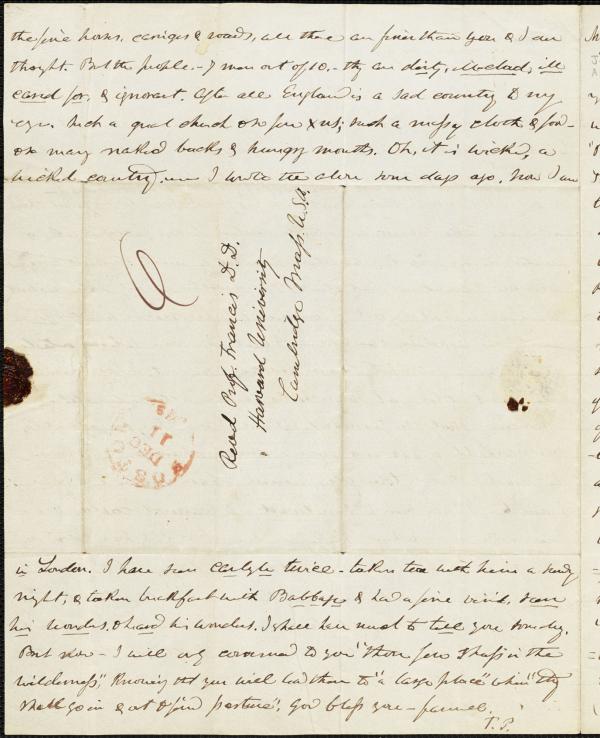 the fine horses, carriages & roads, all these are finer than you & I ever
thought. But the people. – 9 men out of 10. – they are dirty, ill clad, ill
cared for, & ignorant. After all England is a sad country to my
eyes. Such a great church
many naked backs & hungry mouths. Oh, it is wicked, a
wicked country. I wrote the above some days ago. Now I am
6
Revd Prof. Francis D.D.
Harvard University
Cambridge Mass. U.S.A.
BOSTON
DEC
11
MS
in London. I have seen Carlyle twice – taken tea with him a Sunday
night, & taken breakfast with Babbage & had a fine visit. Saw
his wonders, & heard his wonders. I shall have much to tell you someday.
But now – I will only commend to you "those few sheep in the
wilderness", knowing that you will lead them to "a large place" when "they
shall go in & out & find pasture". God bless you – farewell.
T. P.